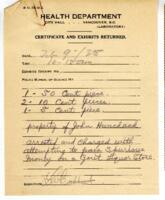 HEALTH DEPARTMENT
CITY HALL VANCOUVER, B.C.
(LABORATORY)
CERTIFICATE AND EXHIBITS RETURNED.
DATE
TIME 10-
1 - 50 Cent piece
2 - 10 Cent pieces
1 - 5 Cent piece
property of John
arrested and charged with
attempting to pass Spurious
money on a Govt Liquor Store.